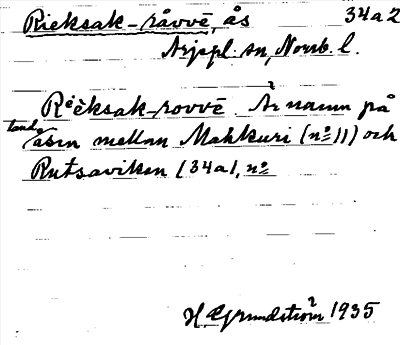 Rieksak-råvvē, ås 34a2
Arjepl. sn, Norrb. l.
Rēēksak-rovvē. Är namn på
landåsen mellan Mahkuri (nº 11) och
Rutsaviken (34a1, nº
H. Grundström 1935